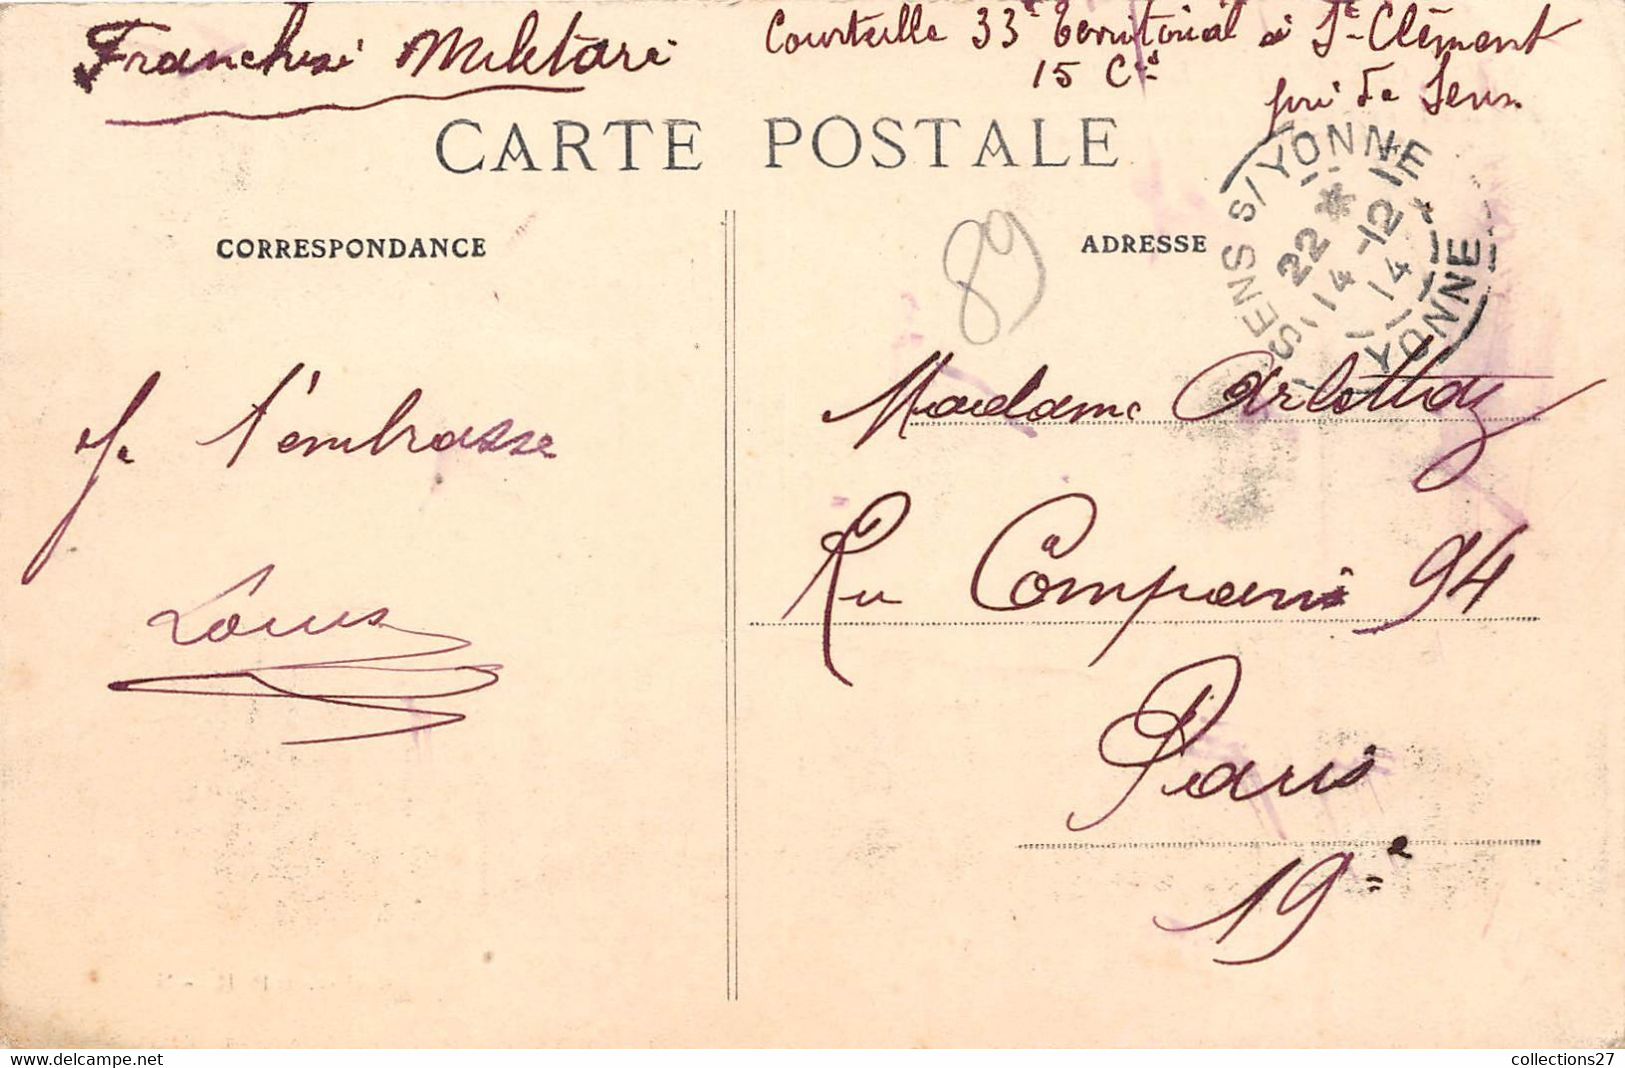 Franchise Militare
Courteille 33e Territorial à St Clément
15 Cie
près de Sens
CARTE POSTALE
SENS S/YONNE
22 *
14 -12
14
YONNE
CORRESPONDANCE
ADRESSE
89
Je t'embrasse
Louis
Madame
Ru Compans 94
Paris
19e
collections27